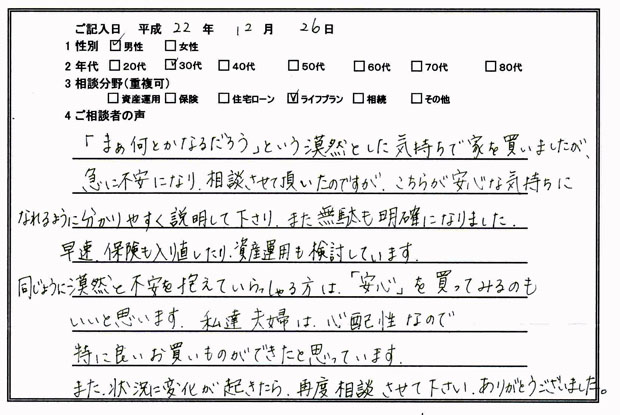 ご記入日 平成 22 年 12 月 26 日
1 性別 ☑男性 □女性
2 年代 □20代 ☑30代 □40代 □50代 □60代 □70代 □80代
3 相談分野(重複可)
□資産運用 □保険 □住宅ローン ☑ライフプラン □相続 □その他
4 ご相談者の声
「まぁ何とかなるだろう」という漠然とした気持ちで家を買いましたが、
急に不安になり、相談させて頂いたのですが、こちらが安心な気持ちに
なれるように分かりやすく説明して下さり、また無駄も明確になりました。
早速、保険も入り直したり、資産運用も検討しています。
同じように漠然と不安を抱えていらっしゃる方は、「安心」を買ってみるのも
いいと思います。私達夫婦は、心配性なので
特に良いお買いものができたと思っています。
また、状況に変化が起きたら、再度相談させて下さい。ありがとうございました。